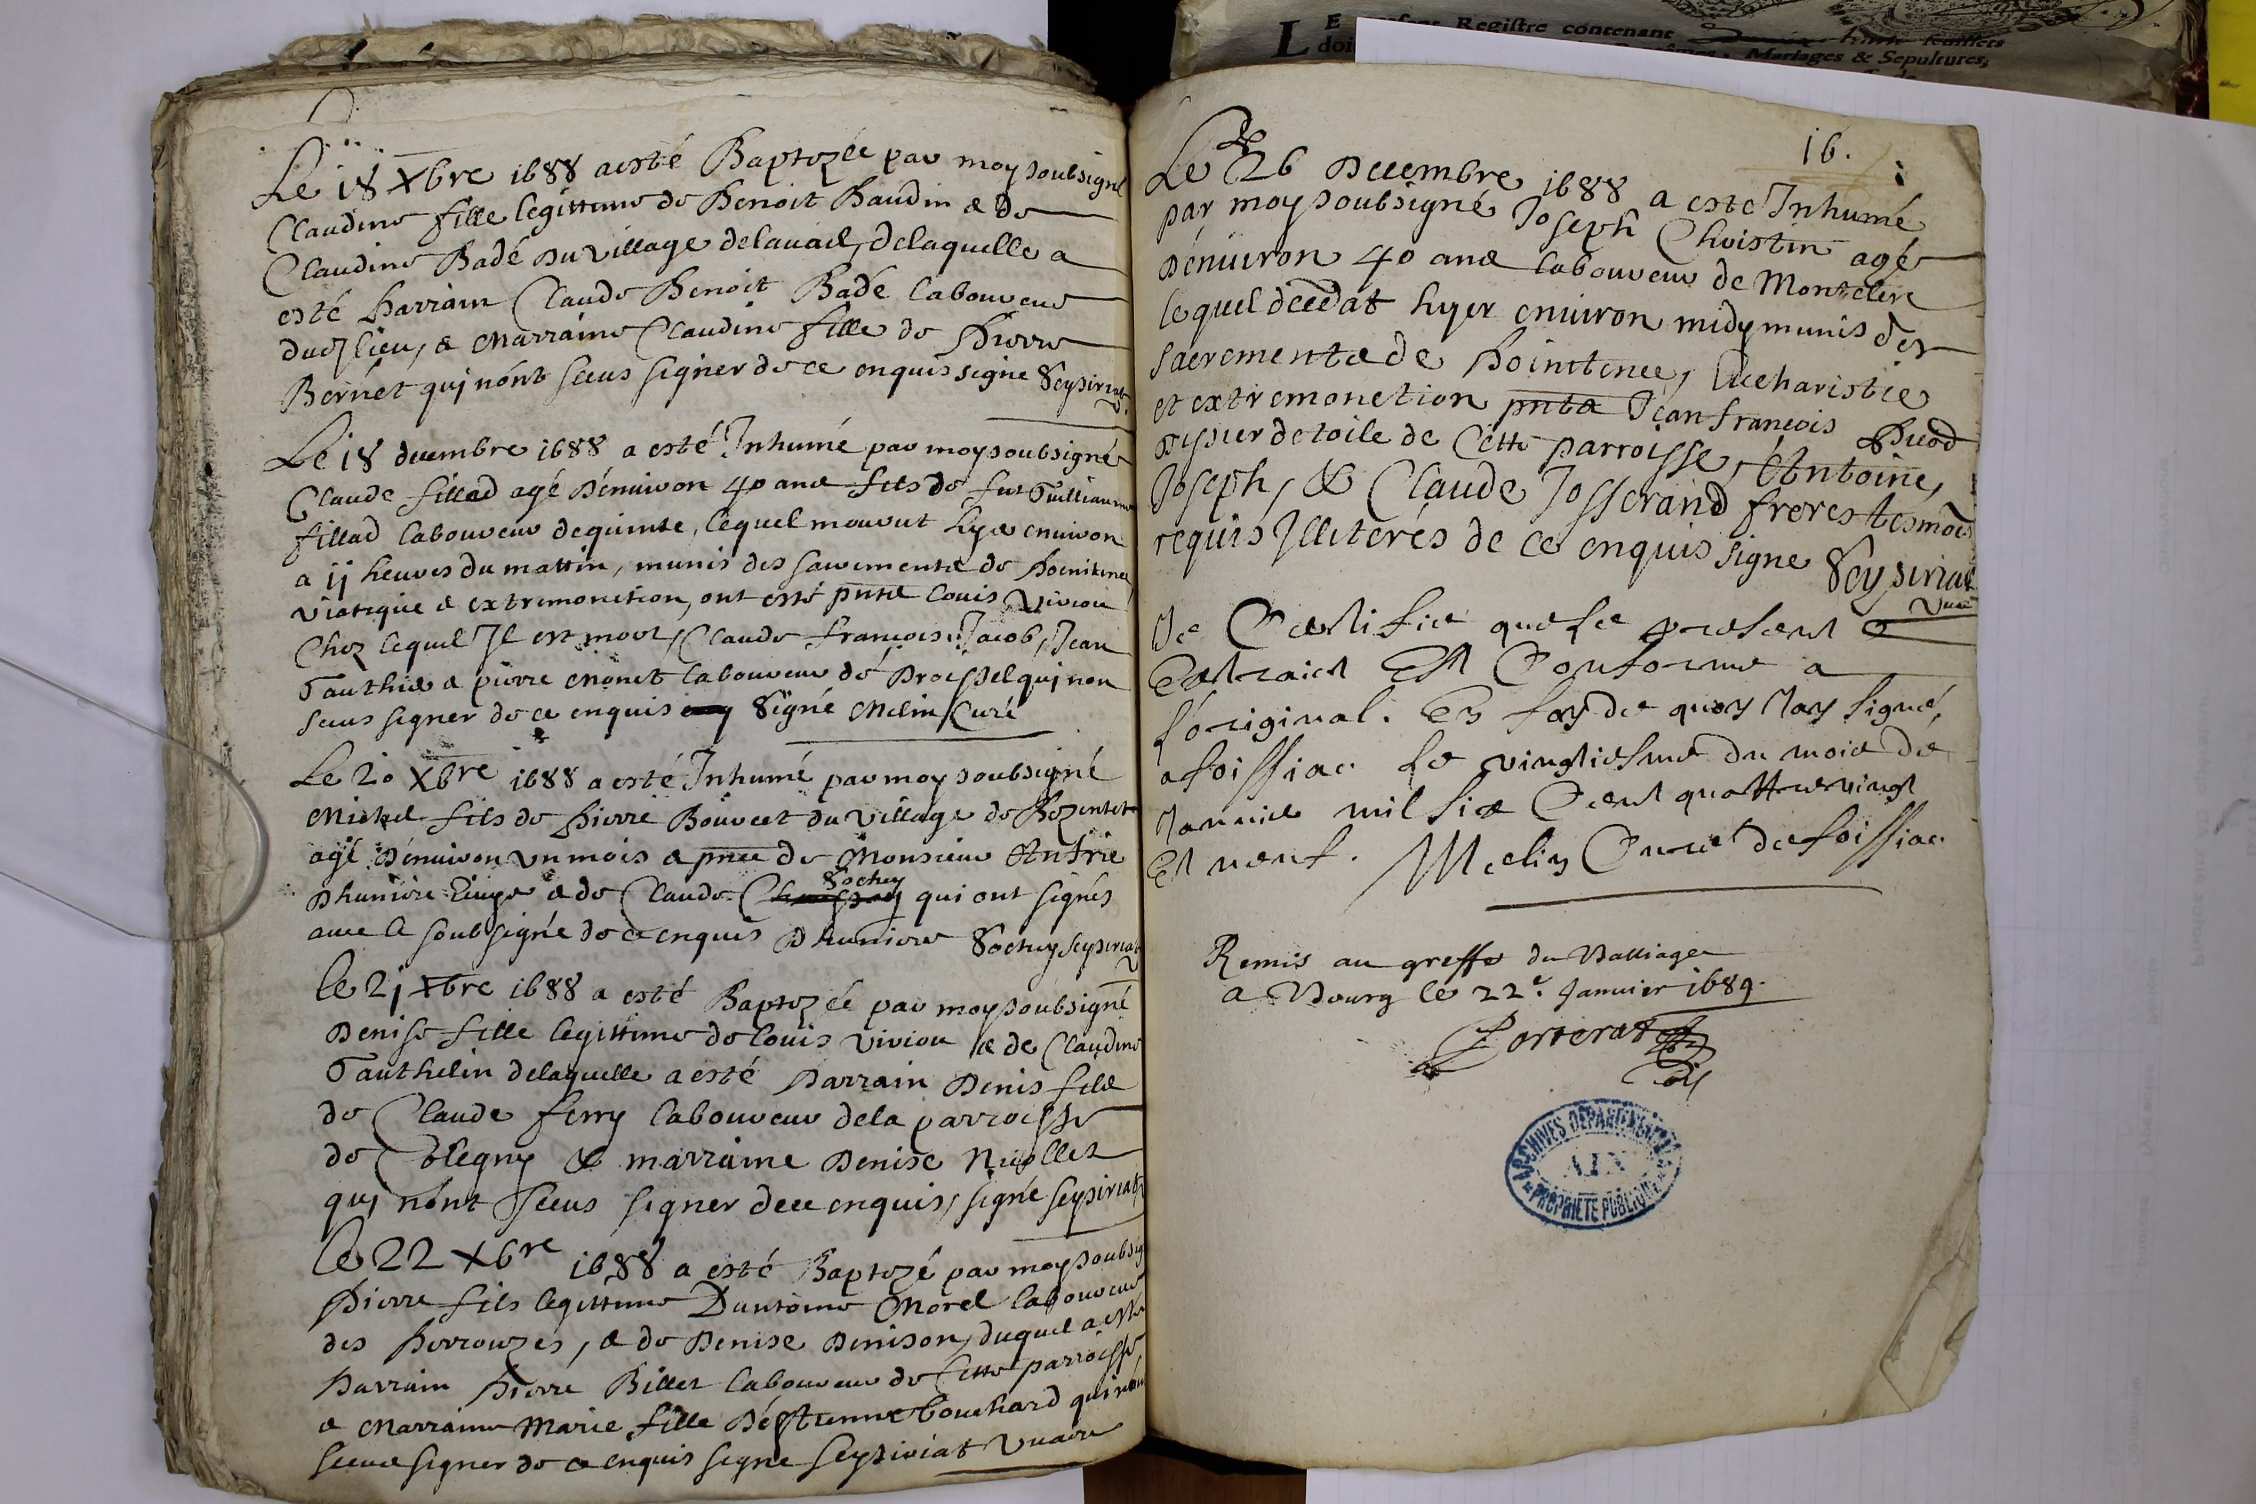 Le 18 Xbre 1688 a esté Baptozée par moy soubsigné
Claudine fille legittime de Benoit Baudin & de
Claudine Badé du village delauail, delaquelle a
esté Parrain Claude Benoit Badé laboureur
dud lieu, & Marraine Claudine fille de Pierre
Bernét qui nónt sceus signer de ce enquis signe Seysiriat
Le 18 decembre 1688 a esté Inhumé par moy soubsigné
Claude fillad agé dénuiron 40 ans fils de fut Guilliaume
fillad laboureur dequinte, lequel mourut hyer enuiron
a 11 heures du mattin, munis des sacrements de Poenitence
viatique & extremonction, ont esté pnts Louis Viviou
Chez lequel Il est mort, Claude francois Jacob, Jean
Gauthier & pierre Monet laboureur de Broissel qui non
sceus signer de ce enquis Signé Melin Curé
Le 20 Xbre 1688 a esté Inhumé par moy soubsigné
Michel fils de Pierre Bouvet du village de
agé dénuiron vn mois & pnce de Monsieur
Dhuniere & de Claude Sochey qui ont signés
auec le soubsigné de ce enquis Dhuniere Sochey Seysiriat
Le 21 Xbre 1688 a esté Baptozée par moy soubsigné
Denise fille legittime de Louis Viviou & de Claudine
Gauthelin delaquelle a esté Parrain Denis fils
de Claude ferry laboureur dela parroisse
de Colegny & marraine Denise Nicollet
qui nónt sceus signer de ce enquis, signé Seysiriat
Le 22 Xbre 1688 a esté Baptozé par moy soubsig
Pierre fils legittime Dantoine Morel laboureur
des Perrouzes, & de Denise Denison, duquel a esté
Parrain Pierre Billet laboureur de Cette parroisse
& Marraine Marie fille Déstienne Bouchard qui nont
sceus signer de ce enquis signe Seysiriat Vicaire
16.
Le 26 Decembre 1688 a esté Inhumé
par moy soubsigné Joseph Christin agé
Dénuiron 40 ans laboureur de Montclere
lequel decedat hyer enuiron midy munis des
sacrements de Pointence, Eucharistie
et extremonction pnts Jean françois Puod
tissier de toile de Cette parroisse, Antoine,
Joseph, & Claude Josserand freres tesmois
requis Illiterés de ce enquis signe Seysiriat
Vicaire
Je Certifie que le present
Extraict Est Conforme a
l'original. En foy de quoy Jay signé,
a foissiac le vingtiesme du mois de
Januier mil six Cent quattrevingt
Et neuf. Melin Curé de foissiac
Remis au greffe du Balliage
a Bourg le 22e. Januier 1689.
ARCHIVES DEPARTEMENTALES
AIN
PROPRIETE PUBLIQUE
Registre contenant
feuillets
Mariages & Sepultures,